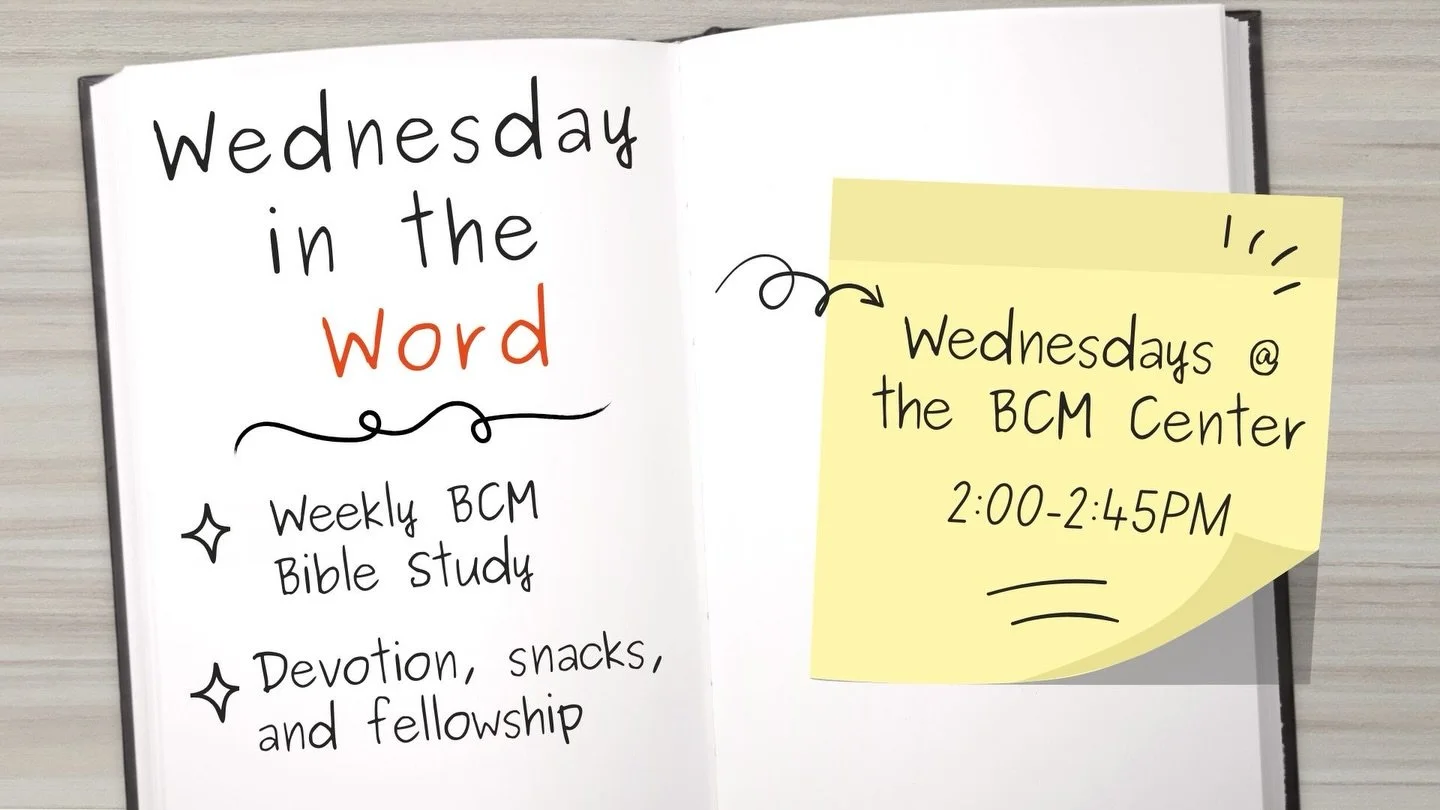 Wednesday
in the
Word
Weekly BCM
Bible Study
Devotion, snacks,
and fellowship
Wednesdays @
the BCM Center
2:00-2:45PM